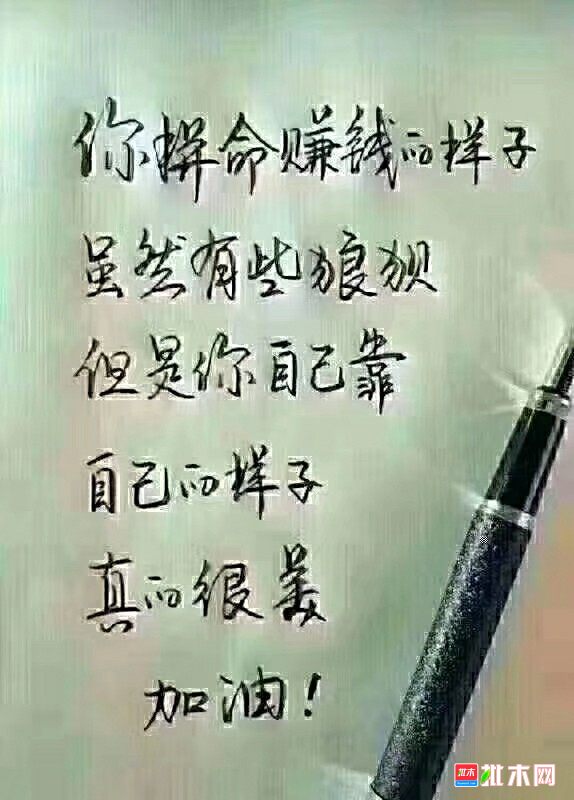 你拼命赚钱的样子
虽然有些狼狈
但是你自己靠
自己的样子
真的很美
加油！
批木 批木网